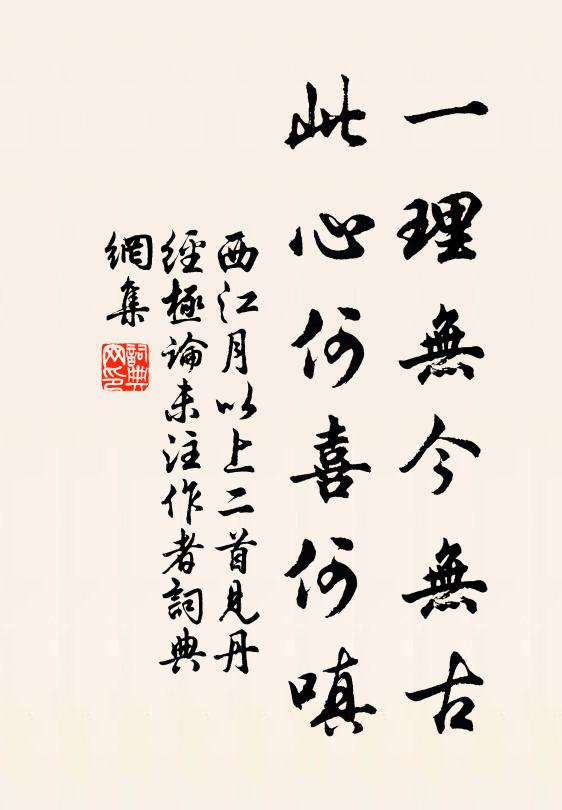 一理無今無古
此心何喜何嗔
西江月以上二首見丹
經極論未注作者詞典
網集
詞典
网印